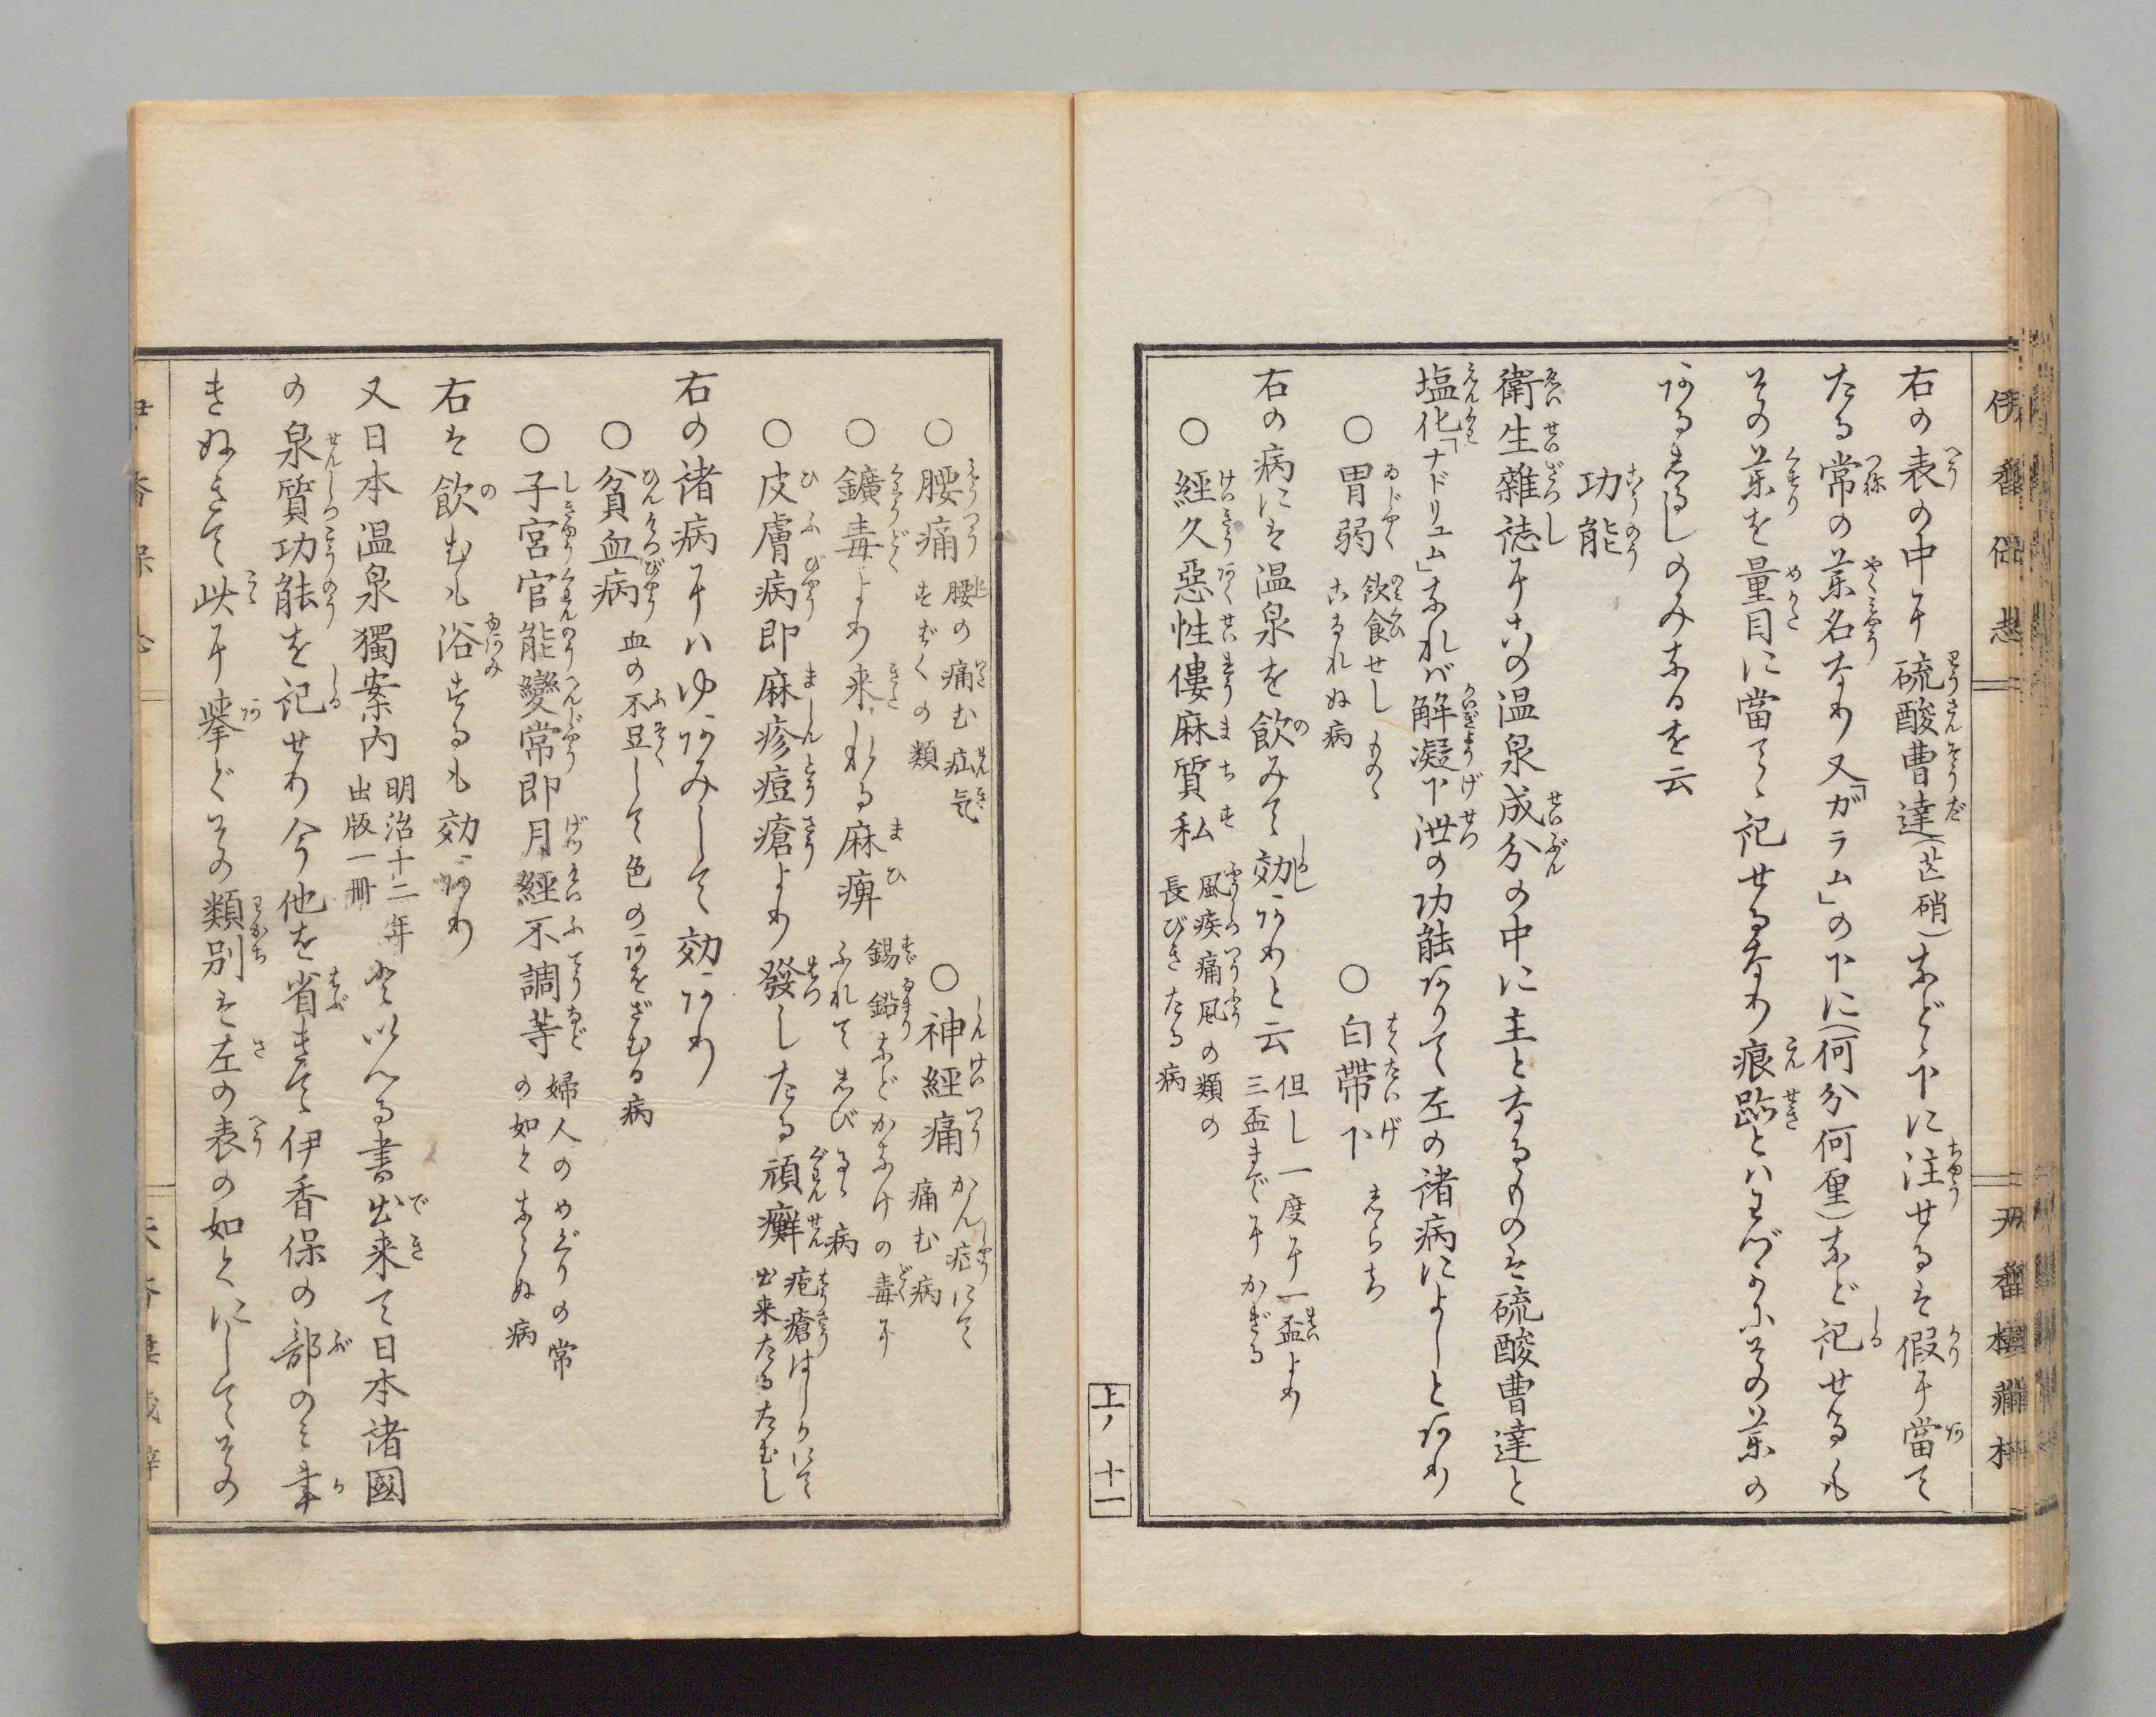 右の表の中に硫酸曹達(芒硝)などゝ下に注せるは假に當て
たる常の薬名なり又「ガラム」の下に(何分何厘)など記せるも
その薬を量目に當てゝ記せるなり痕跡とハわづかにその薬の
あるしるしのみなるを云
功能
衛生雜誌にこの温泉成分の中に主となるものは硫酸曹達と
塩化「ナドリュム」なれバ解凝下泄の功能ありて左の諸病によしとあり
○胃弱 飲食せしものゝ
こなれぬ病
○白帶下 しらち
右の病には温泉を飲みて効ありと云 但し一度に一盃より
三盃までにかぎる
○經久惡性僂麻質私 風疾痛風の類の
長びきたる病
上ノ十一
○腰痛 腰の痛む疝気
すばくの類
○神經痛 かん症にて
痛む病
○鑛毒より来れる麻痺 錫鉛などかなけの毒に
ふれてしびるゝ病
○皮膚病即麻疹痘瘡より發したる頑癬 疱瘡はしかにて
出来たるたむし
右の諸病にハゆあみして効あり
○貧血病 血の不足して色のあをざむる病
○子宮官能變常即月經不調等 婦人のめぐりの常
の如くならぬ病
右は飲むも浴するも効あり
又日本温泉獨案内 明治十二年
出版一冊 といへる書出来て日本諸國
の泉質功能を記せり今他を省きて伊香保の部のミ書
きぬきて此に擧ぐその類別は左の表の如くにしてその